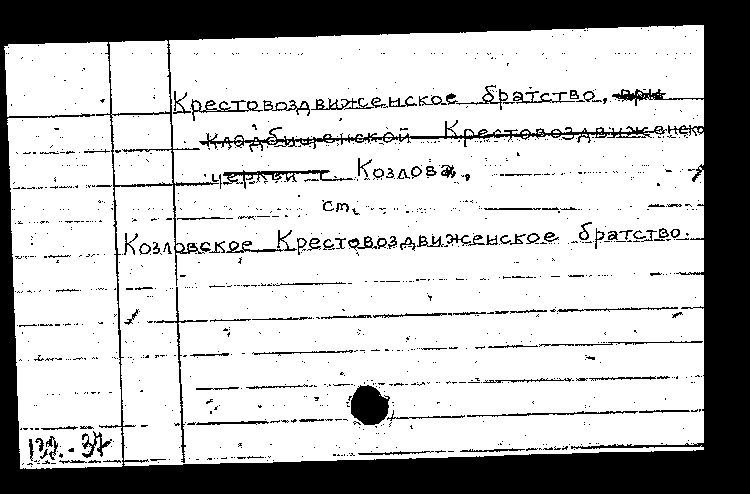 Крестовоздвиженское братство, при
кладбищенской Крестовоздвиженско
церкви г. Козлова,
ст.
Козловское Крестовоздвиженское братство.